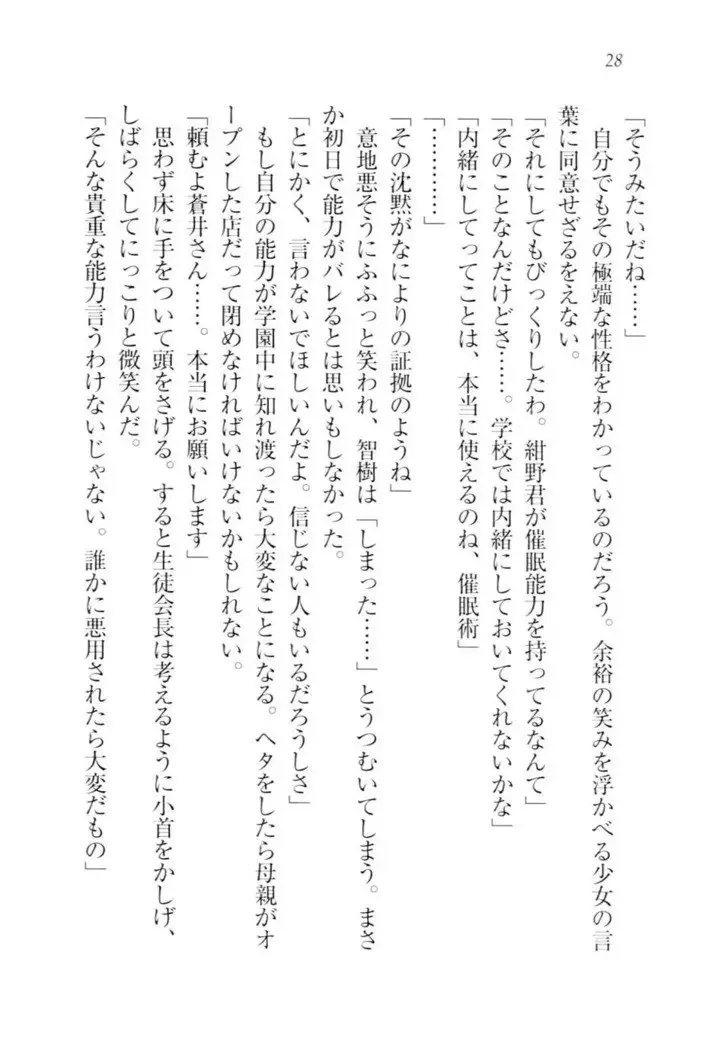 28
「そうみたいだね……」
自分でもその極端な性格をわかっているのだろう。余裕の笑みを浮かべる少女の言
葉に同意せざるをえない。
「それにしてもびっくりしたわ。紺野君が催眠能力を持ってるなんて」
「そのことなんだけどさ……。学校では内緒にしておいてくれないかな」
「内緒にしてってことは、本当に使えるのね、催眠術」
「…………」
「その沈黙がなによりの証拠のようね」
意地悪そうにふふっと笑われ、智樹は「しまった……」とうつむいてしまう。まさ
か初日で能力がバレるとは思いもしなかった。
「とにかく、言わないでほしいんだよ。信じない人もいるだろうしさ」
もし自分の能力が学園中に知れ渡ったら大変なことになる。ヘタをしたら母親がオ
ープンした店だって閉めなければいけないかもしれない。
「頼むよ蒼井さん……。本当にお願いします」
思わず床に手をついて頭をさげる。すると生徒会長は考えるように小首をかしげ、
しばらくしてにっこりと微笑んだ。
「そんな貴重な能力言うわけないじゃない。誰かに悪用されたら大変だもの」